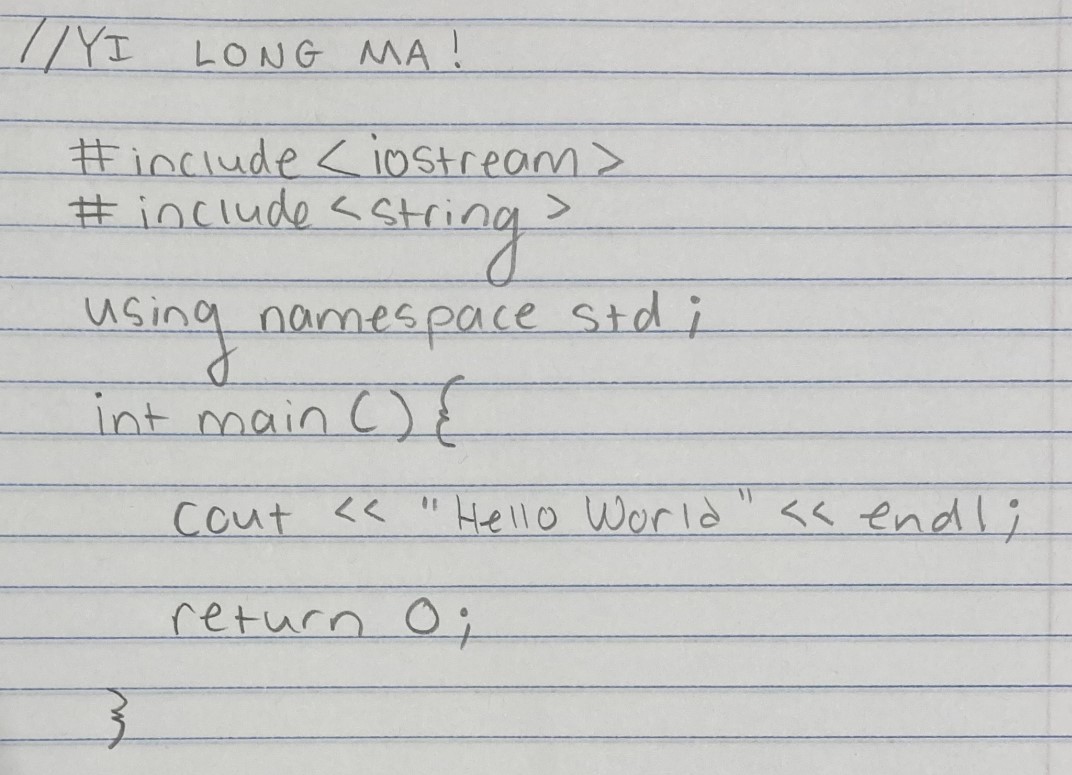 //YI LONG MA!
#include <iostream>
#include <string>
using namespace std;
int main () {
cout << "Hello World" << endl;
return 0;
}